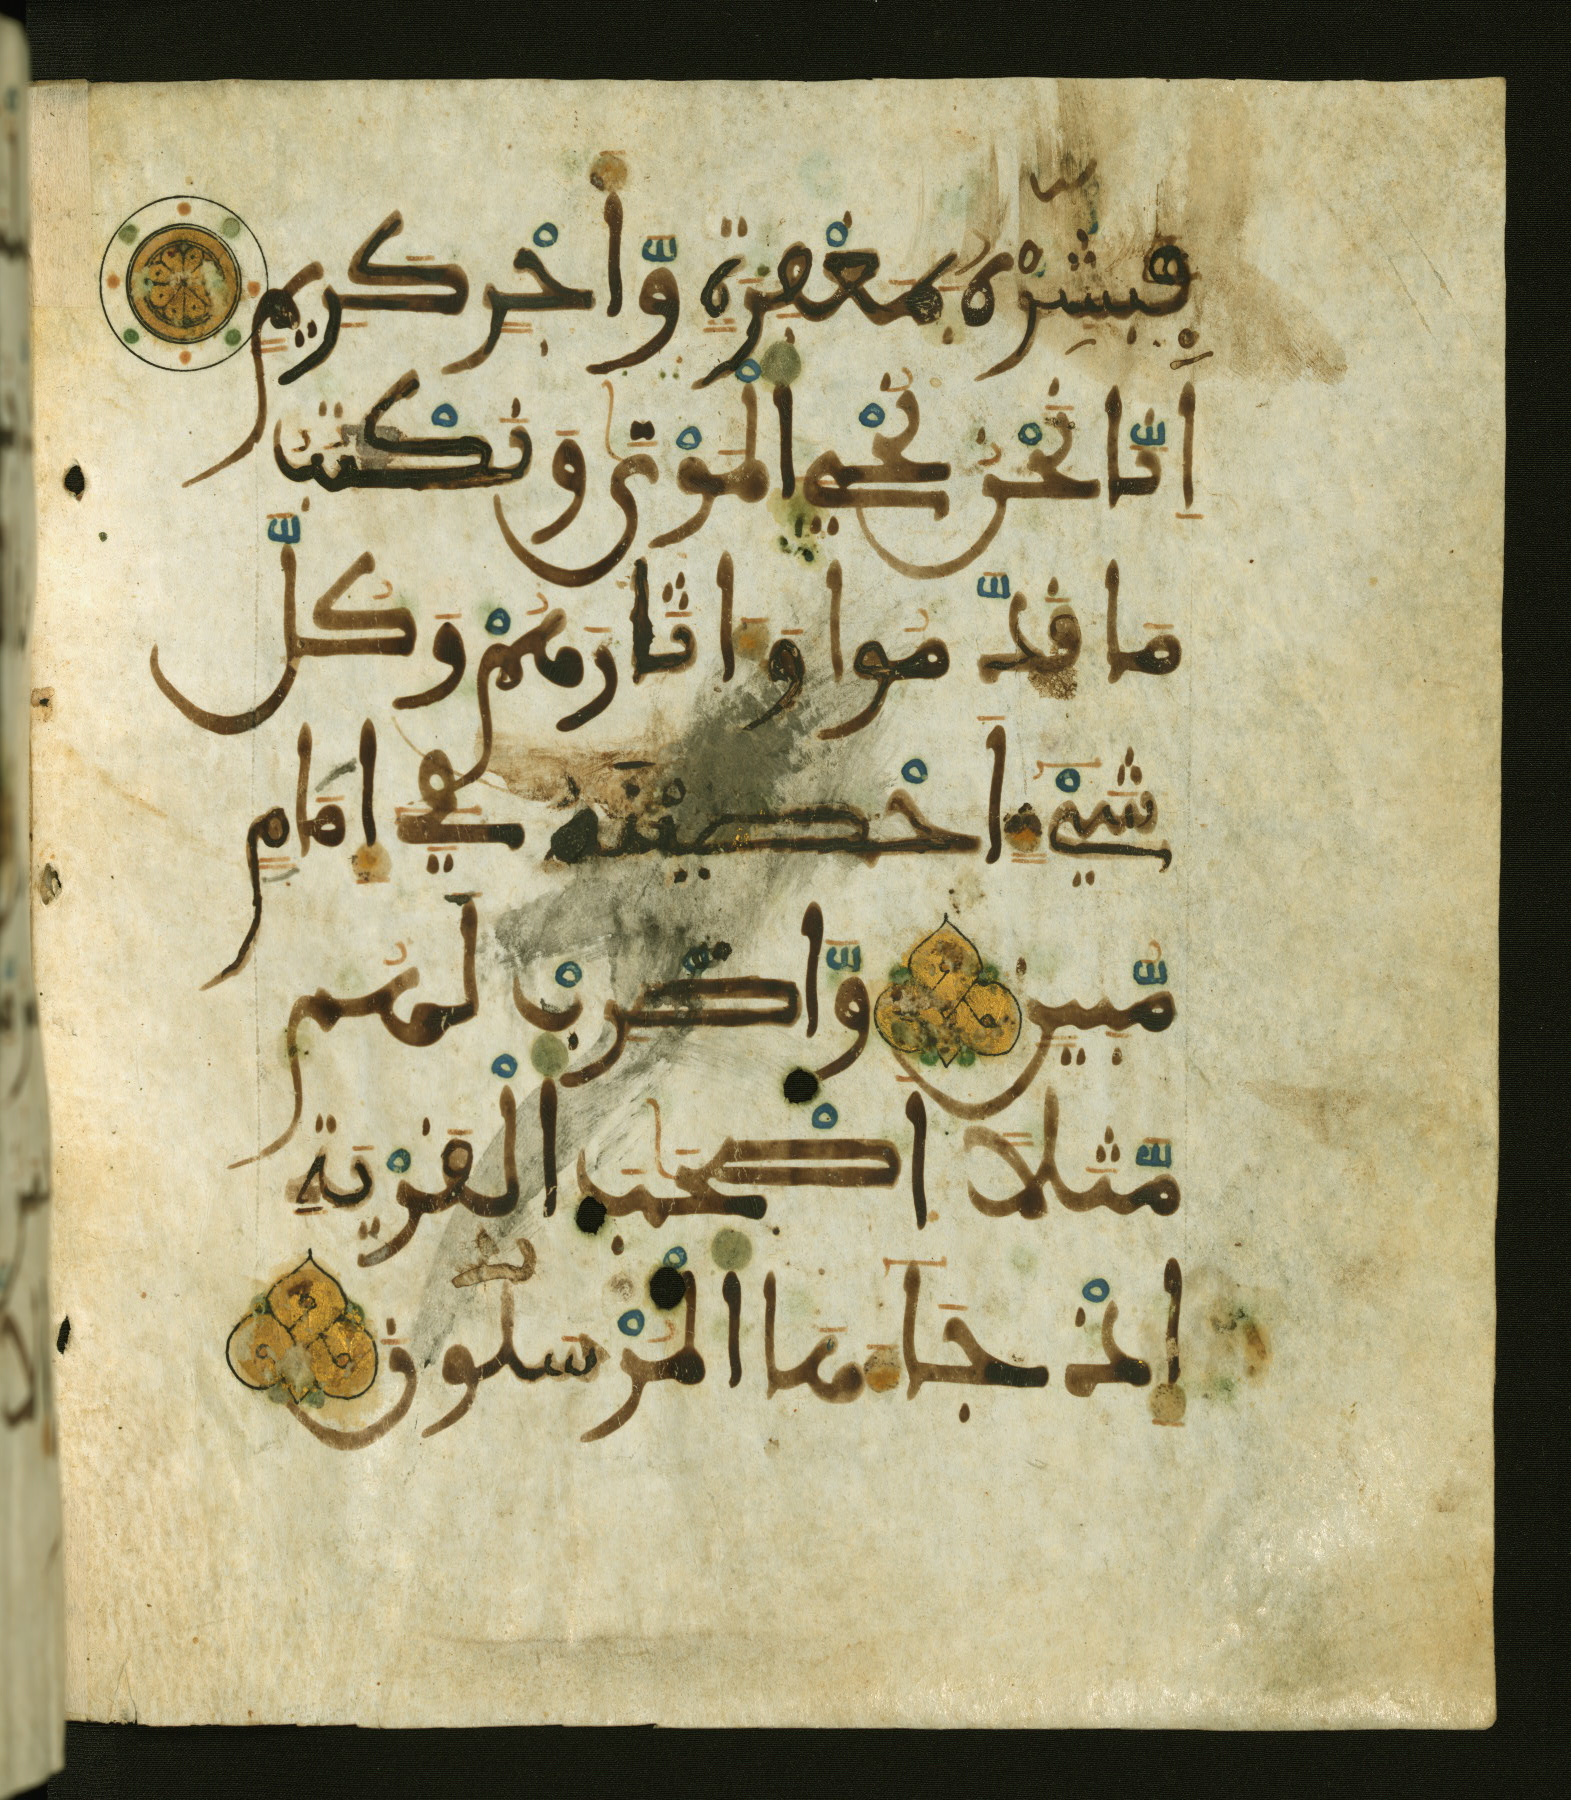 فَبَشِّرْهُ بِمَغْفِرَةٍ وَّأَجْرٍ كَرِيمٍ
إِنَّا نَحْنُ نُحْيِ الْمَوْتٰى وَنَكْتُبُ
مَا قَدَّمُوا وَءَاثَارَهُمْ وَكُلَّ
شَيْءٍ اَحْصَيْنٰهُ فِي إِمَامٍ
مُّبِينٍ وَّاضْرِبْ لَهُم
مَّثَلًا اَصْحٰبَ الْقَرْيَةِ
إِذْ جَآءَهَا الْمُرْسَلُونَ